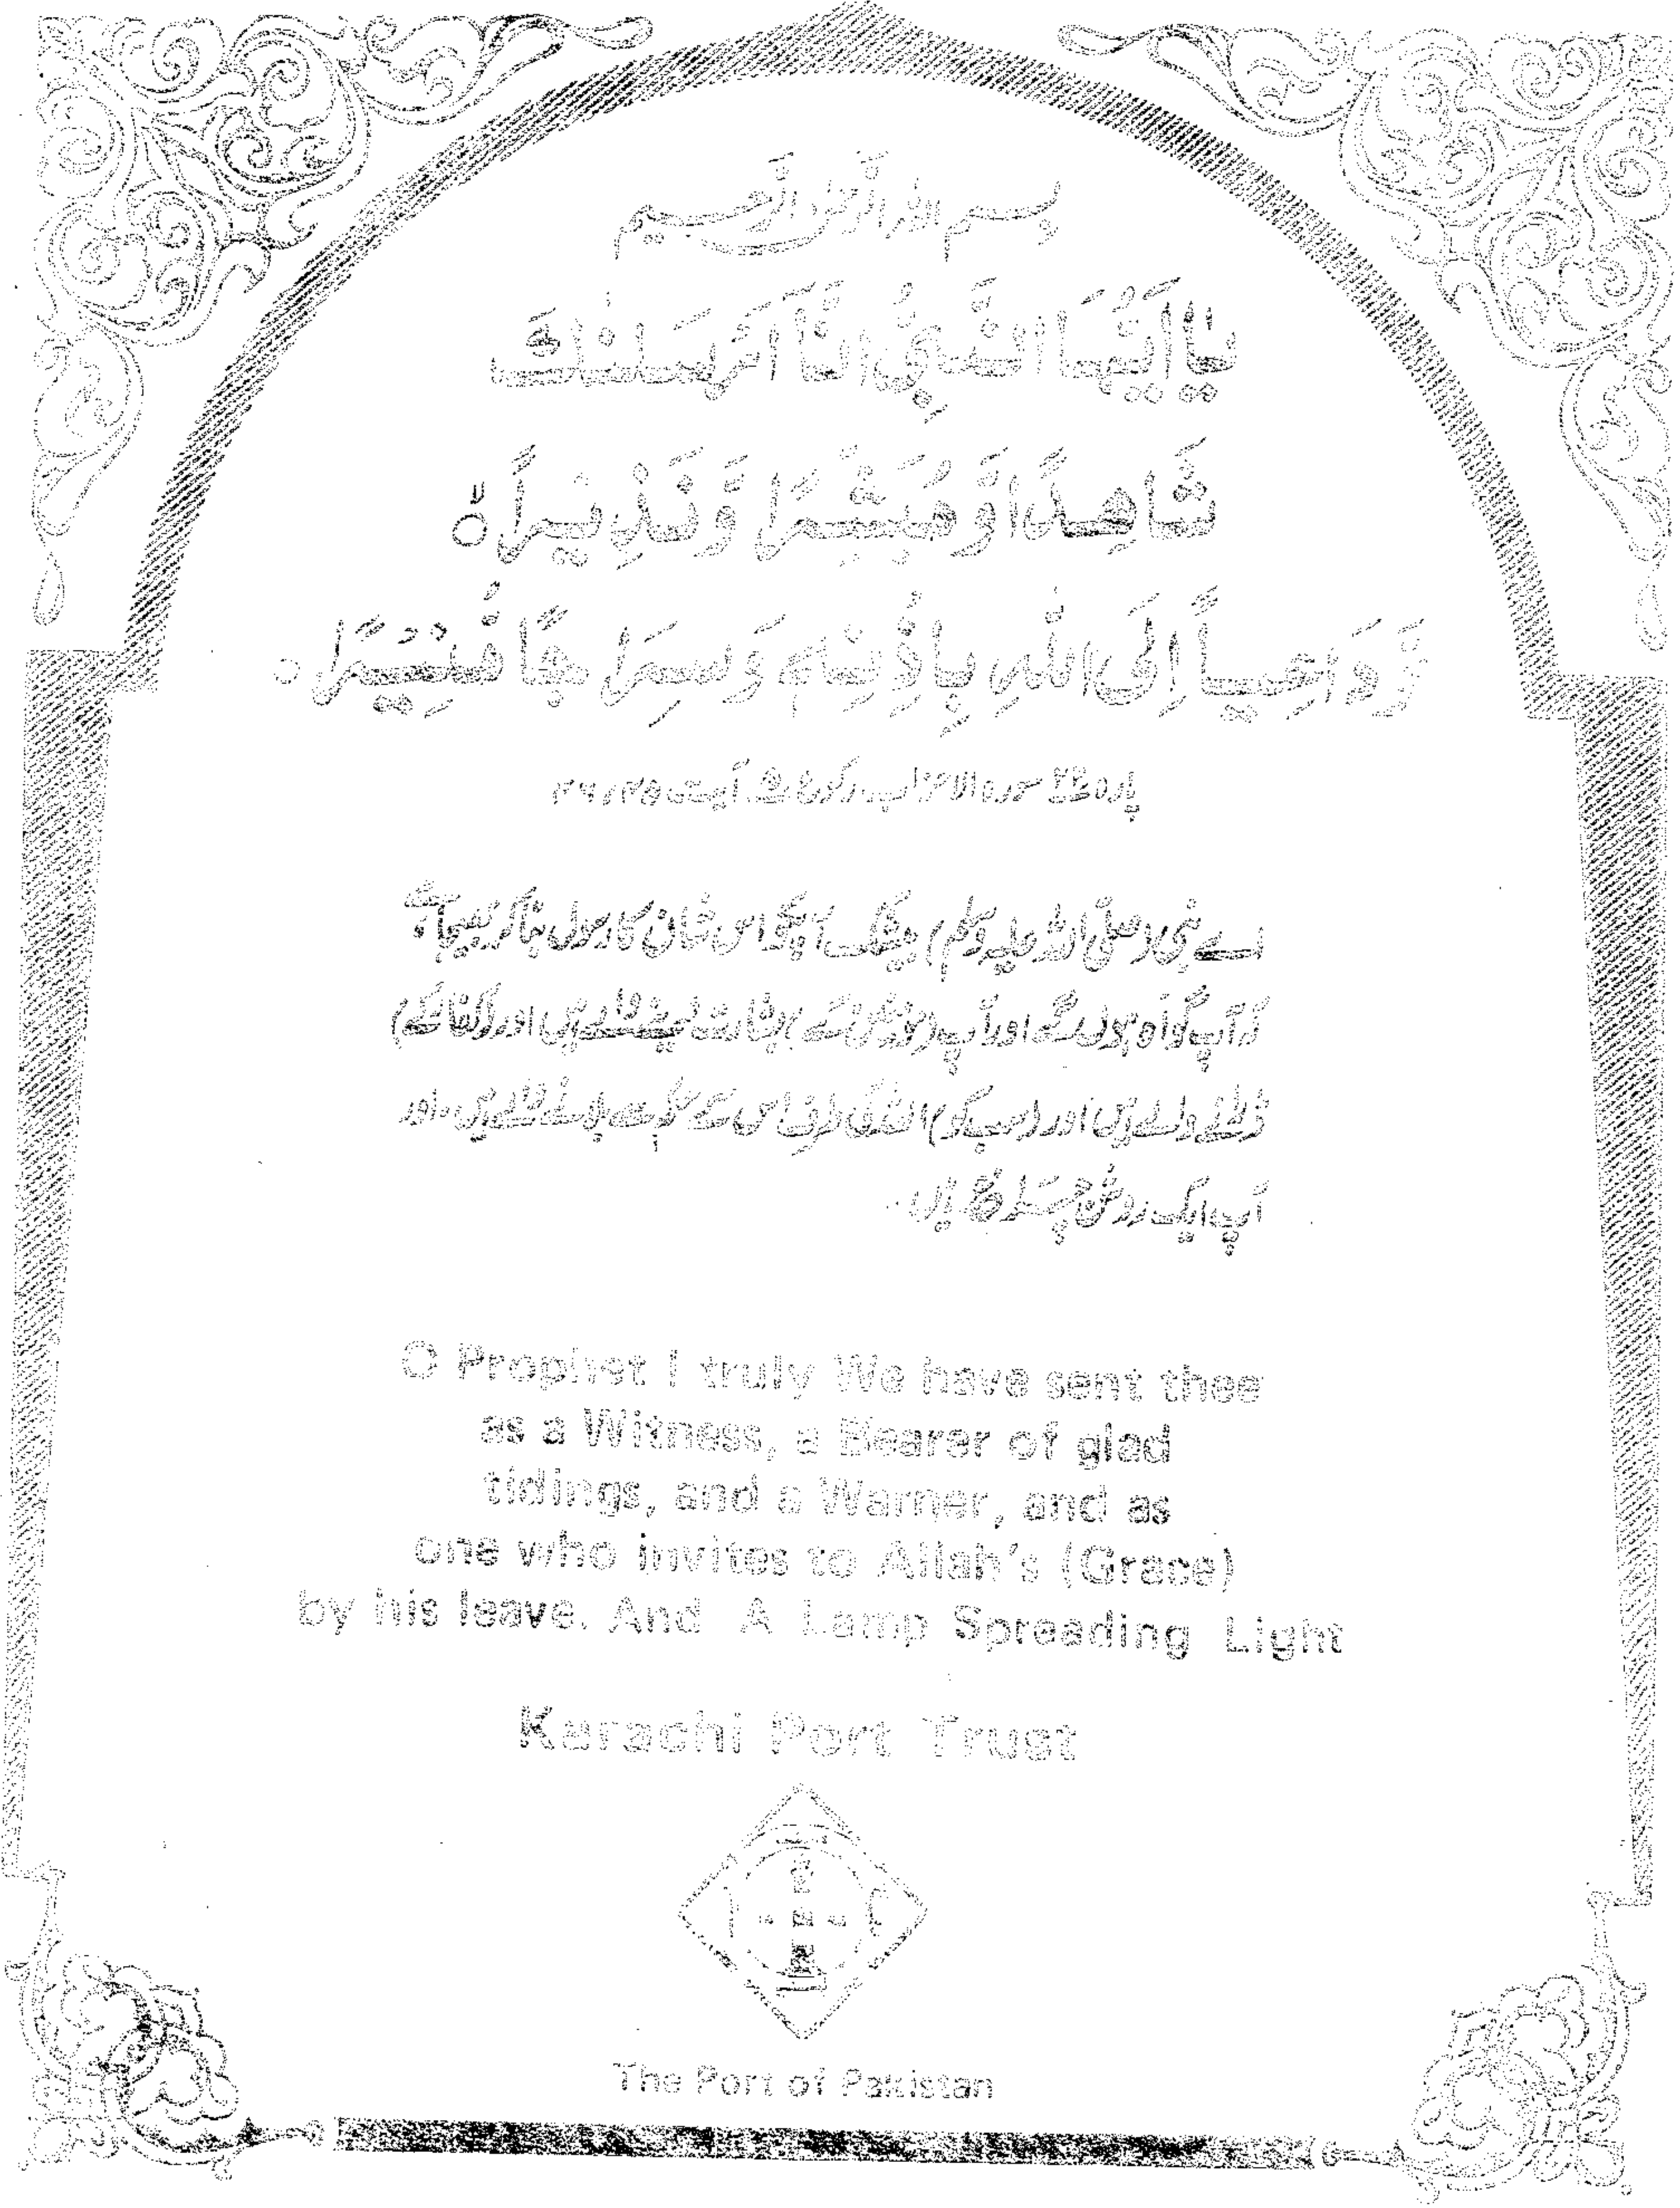 بسم اللہ الرحمٰن الرحیم
يٰٓاَيُّهَا النَّبِيُّ اِنَّآ اَرْسَلْنٰكَ
شَاهِدًا وَّ مُبَشِّرًا وَّ نَذِيْرًا ۙ
وَّ دَاعِيًا اِلَى اللّٰهِ بِاِذْنِهٖ وَ سِرَاجًا مُّنِيْرًا ○
پارہ ۲۲ سورہ الاحزاب رکوع آیت ۴۵ ، ۴۶
اے نبی (صلی اللہ علیہ وسلم) بیشک آپکو اس شان کا رسول بنا کر بھیجا ہے
کہ آپ گواہ ہوں گے اور آپ (مومنین کے) بشارت دینے والے ہیں اور (کفار کے)
ڈرانے والے ہیں اور (سب کو) اللہ کی طرف اس کے حکم سے بلانے والے ہیں ۔ اور
آپ ایک روشن چراغ ہیں
O Prophet ! truly We have sent thee
as a Witness, a Bearer of glad
tidings, and a Warner, and as
one who invites to Allah's (Grace)
by his leave. And A Lamp Spreading Light
Karachi Port Trust
The Port of Pakistan